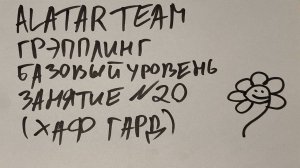 ALATAR TEAM
ГРЭППЛИНГ
БАЗОВЫЙ УРОВЕНЬ
ЗАНЯТИЕ №20
(ХАФ ГАРД)